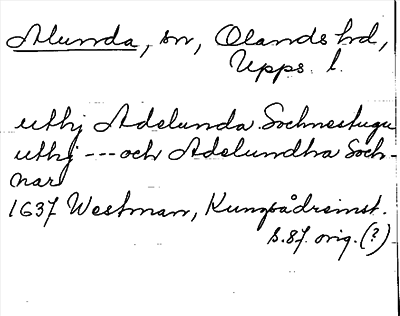 Alunda, sn, Olands hd,
Upps. l.
uthj Adelunda Sochnestugu
uthj --- och Adelundha Soch-
nar
1637 Westman, Kungsådreinst.
s. 87. orig. (?)